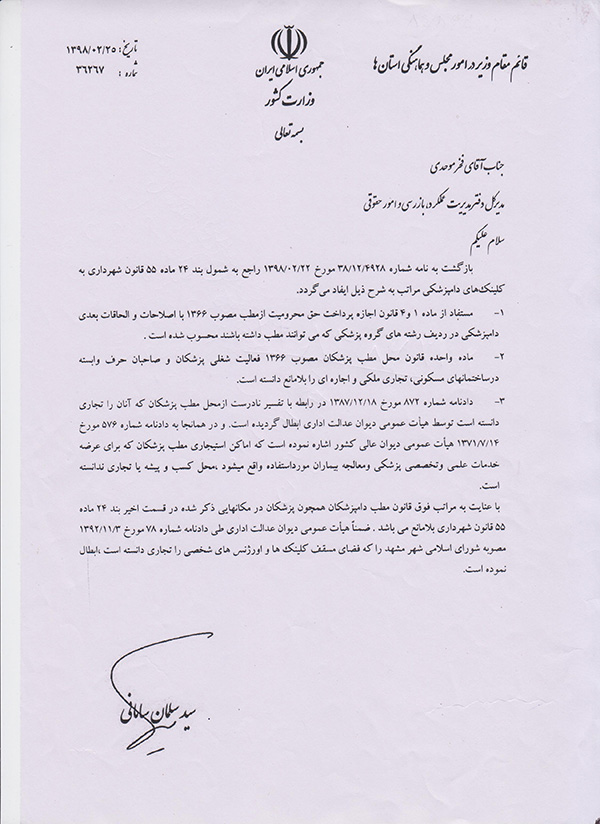 قائم مقام وزیر در امور مجلس و هماهنگی استان ها
جمهوری اسلامی ایران
وزارت کشور
بسمه تعالی
تاریخ: ۱۳۹۸/۰۲/۲۵
شماره : ۳۶۲۶۷
جناب آقای فخر موحدی
مدیر کل دفتر مدیریت عملکرد، بازرسی و امور حقوقی
سلام علیکم
بازگشت به نامه شماره ۳۸/۱۲/۴۹۲۸ مورخ ۱۳۹۸/۰۲/۲۲ راجع به شمول بند ۲۴ ماده ۵۵ قانون شهرداری به
کلینک‌های دامپزشکی مراتب به شرح ذیل ایفاد می‌گردد.
۱- مستفاد از ماده ۱ و۴ قانون اجازه پرداخت حق محرومیت ازمطب مصوب ۱۳۶۶ با اصلاحات و الحاقات بعدی
دامپزشکی در ردیف رشته های گروه پزشکی که می توانند مطب داشته باشند محسوب شده است .
۲- ماده واحده قانون محل مطب پزشکان مصوب ۱۳۶۶ فعالیت شغلی پزشکان و صاحبان حرف وابسته
درساختمانهای مسکونی، تجاری ملکی و اجاره ای را بلامانع دانسته است.
۳- دادنامه شماره ۸۷۲ مورخ ۱۳۸۷/۱۲/۱۸ در رابطه با تفسیر نادرست ازمحل مطب پزشکان که آنان را تجاری
دانسته است توسط هیأت عمومی دیوان عدالت اداری ابطال گردیده است. و در همانجا به دادنامه شماره ۵۷۶ مورخ
۱۳۷۱/۷/۱۴ هیأت عمومی دیوان عالی کشور اشاره نموده است که اماکن استیجاری مطب پزشکان که برای عرضه
خدمات علمی وتخصصی پزشکی ومعالجه بیماران مورداستفاده واقع میشود ،محل کسب و پیشه یا تجاری ندانسته
است.
با عنایت به مراتب فوق قانون مطب دامپزشکان همچون پزشکان در مکانهایی ذکر شده در قسمت اخیر بند ۲۴ ماده
۵۵ قانون شهرداری بلامانع می باشد . ضمناً هیأت عمومی دیوان عدالت اداری طی دادنامه شماره ۷۸ مورخ ۱۳۹۲/۱۱/۳
مصوبه شورای اسلامی شهر مشهد را که فضای مسقف کلینک ها و اورژنس های شخصی را تجاری دانسته است ،ابطال
نموده است.
سید سلمان سامانی